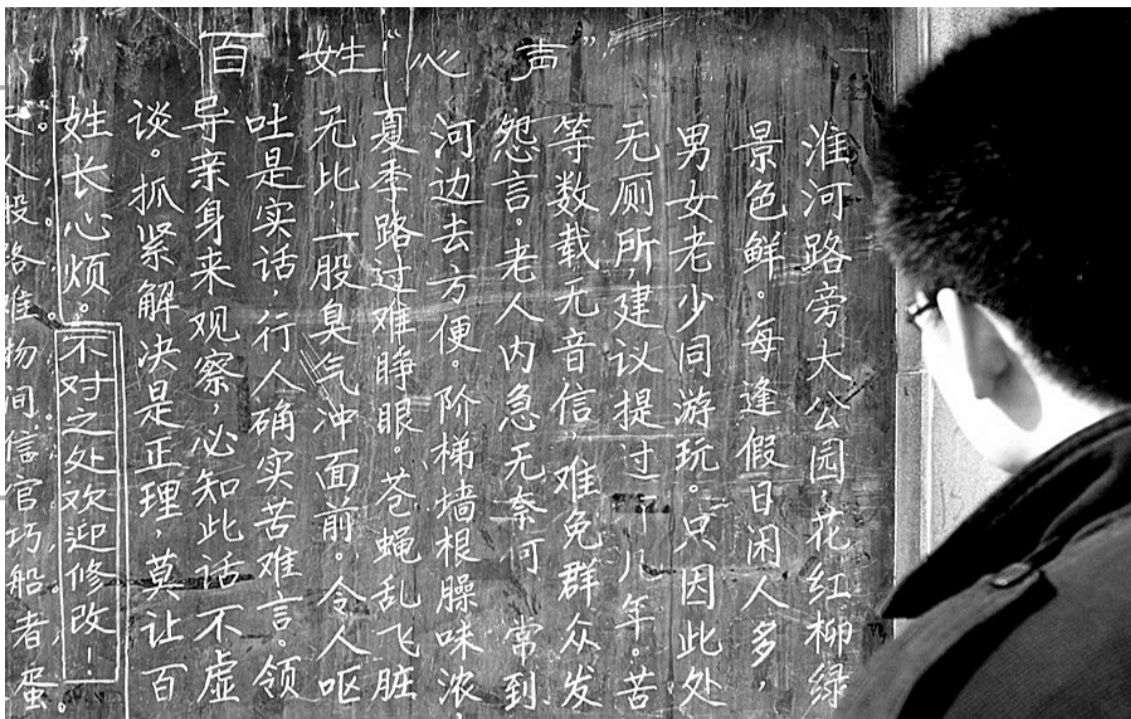 百姓“心声”
淮河路旁大公园，花红柳绿
景色鲜。每逢假日闲人多，
男女老少同游玩。只因此处
无厕所，建议提过十几年。苦
等数载无音信，难免群众发
怨言。老人内急无奈何 常到
河边去方便。阶梯墙根臊味浓，
夏季路过难睁眼。苍蝇乱飞脏
无比，一股臭气冲面前。令人呕
吐是实话，行人确实苦难言。领
导亲身来观察，必知此话不虚
谈。抓紧解决是正理，莫让百
姓长心烦。
不对之处欢迎修改！